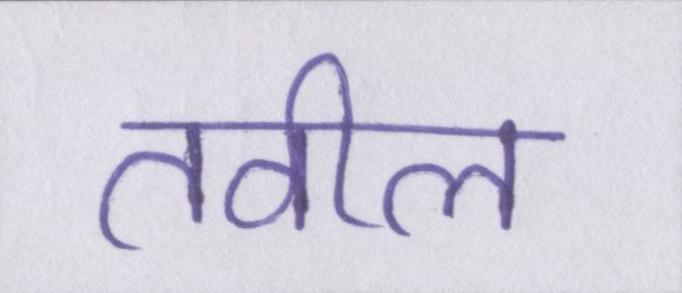 तवील